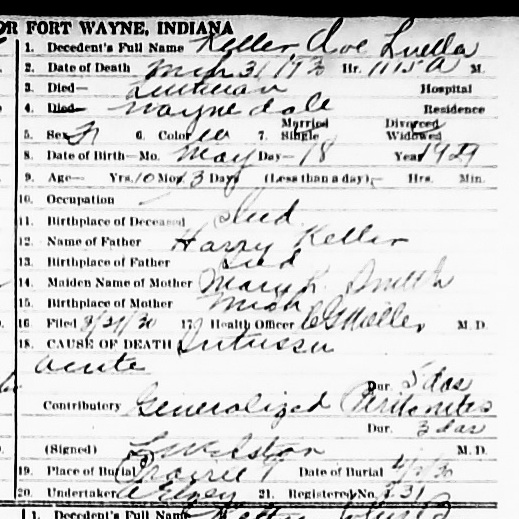 OR FORT WAYNE, INDIANA
1. Decedent's Full Name Keller Doe Luella
2. Date of Death Mch 31 1930 Hr. 11 15 A M.
3. Died— Lutheran Hospital
4. Died— Waynedale Residence
Married Divorced
5. Sex F 6. Color W 7. Single Widowed
8. Date of Birth—Mo. May Day— 18 Year 1929
9. Age— Yrs. 10 Mos. 13 Days (Less than a day)— Hrs. Min.
10. Occupation
11. Birthplace of Deceased Ind.
12. Name of Father Harry Keller
13. Birthplace of Father Ind
14. Maiden Name of Mother Mary K. Smith
15. Birthplace of Mother Mich
16. Filed 17. Health Officer M. D.
18. CAUSE OF DEATH Intussu
acute
Dur. 5 das
Contributory Generalized Peritonitis
Dur. 3 das
(Signed) M. D.
19. Place of Burial Prairie Date of Burial
20. Undertaker 21. Registered No.
1. Decedent's Full Name